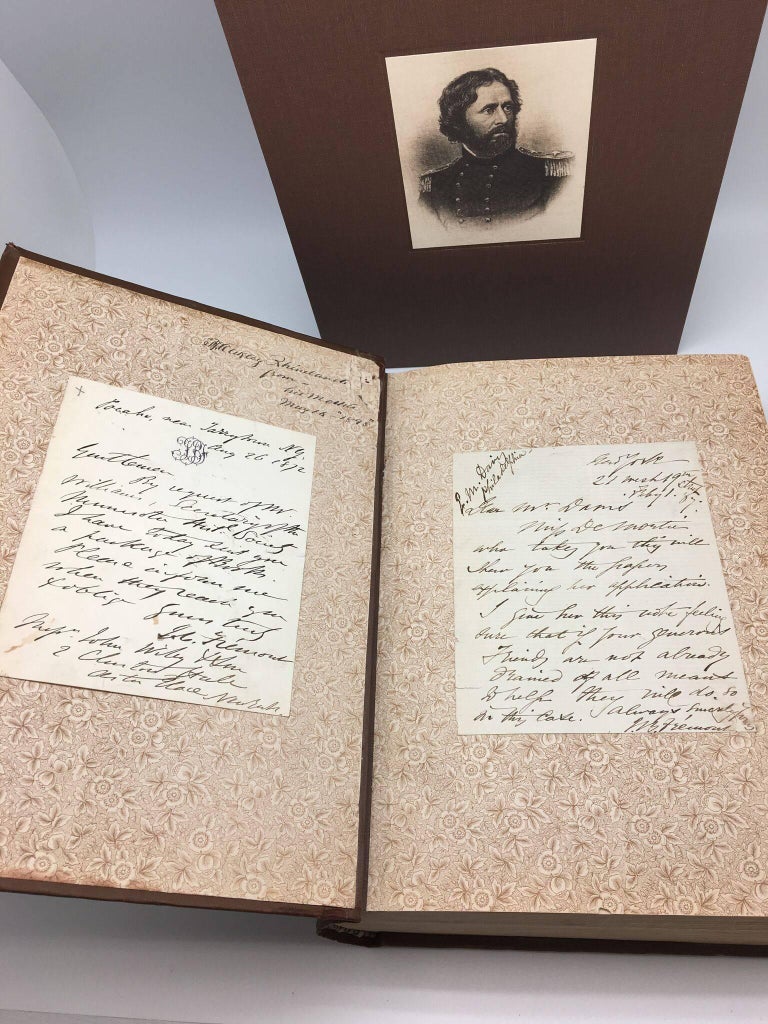 from
his mother
May 16 1898
Pocaho, near Tarrytown NY.
Aug 26
Gentlemen
By request of Mr.
Williams, Secretary of the
I have today sent you
a package of Books.
Please inform me
when they reach you
& oblige Yours truly
J.C. Fremont
Messrs. John Wiley & Son
2 Clinton Hall
Astor Place New York
J. M. Davis
Philadelphia
New York
21 West 19th
Street
Feby 1.
Dear Mr Davis
Miss De Mortie
who takes you this will
show you the papers
explaining her application.
I give her this note feeling
sure that if your generous
friends are not already
drained of all means
to help they will do so
in this case. Always sincerely yours
J.B. Fremont